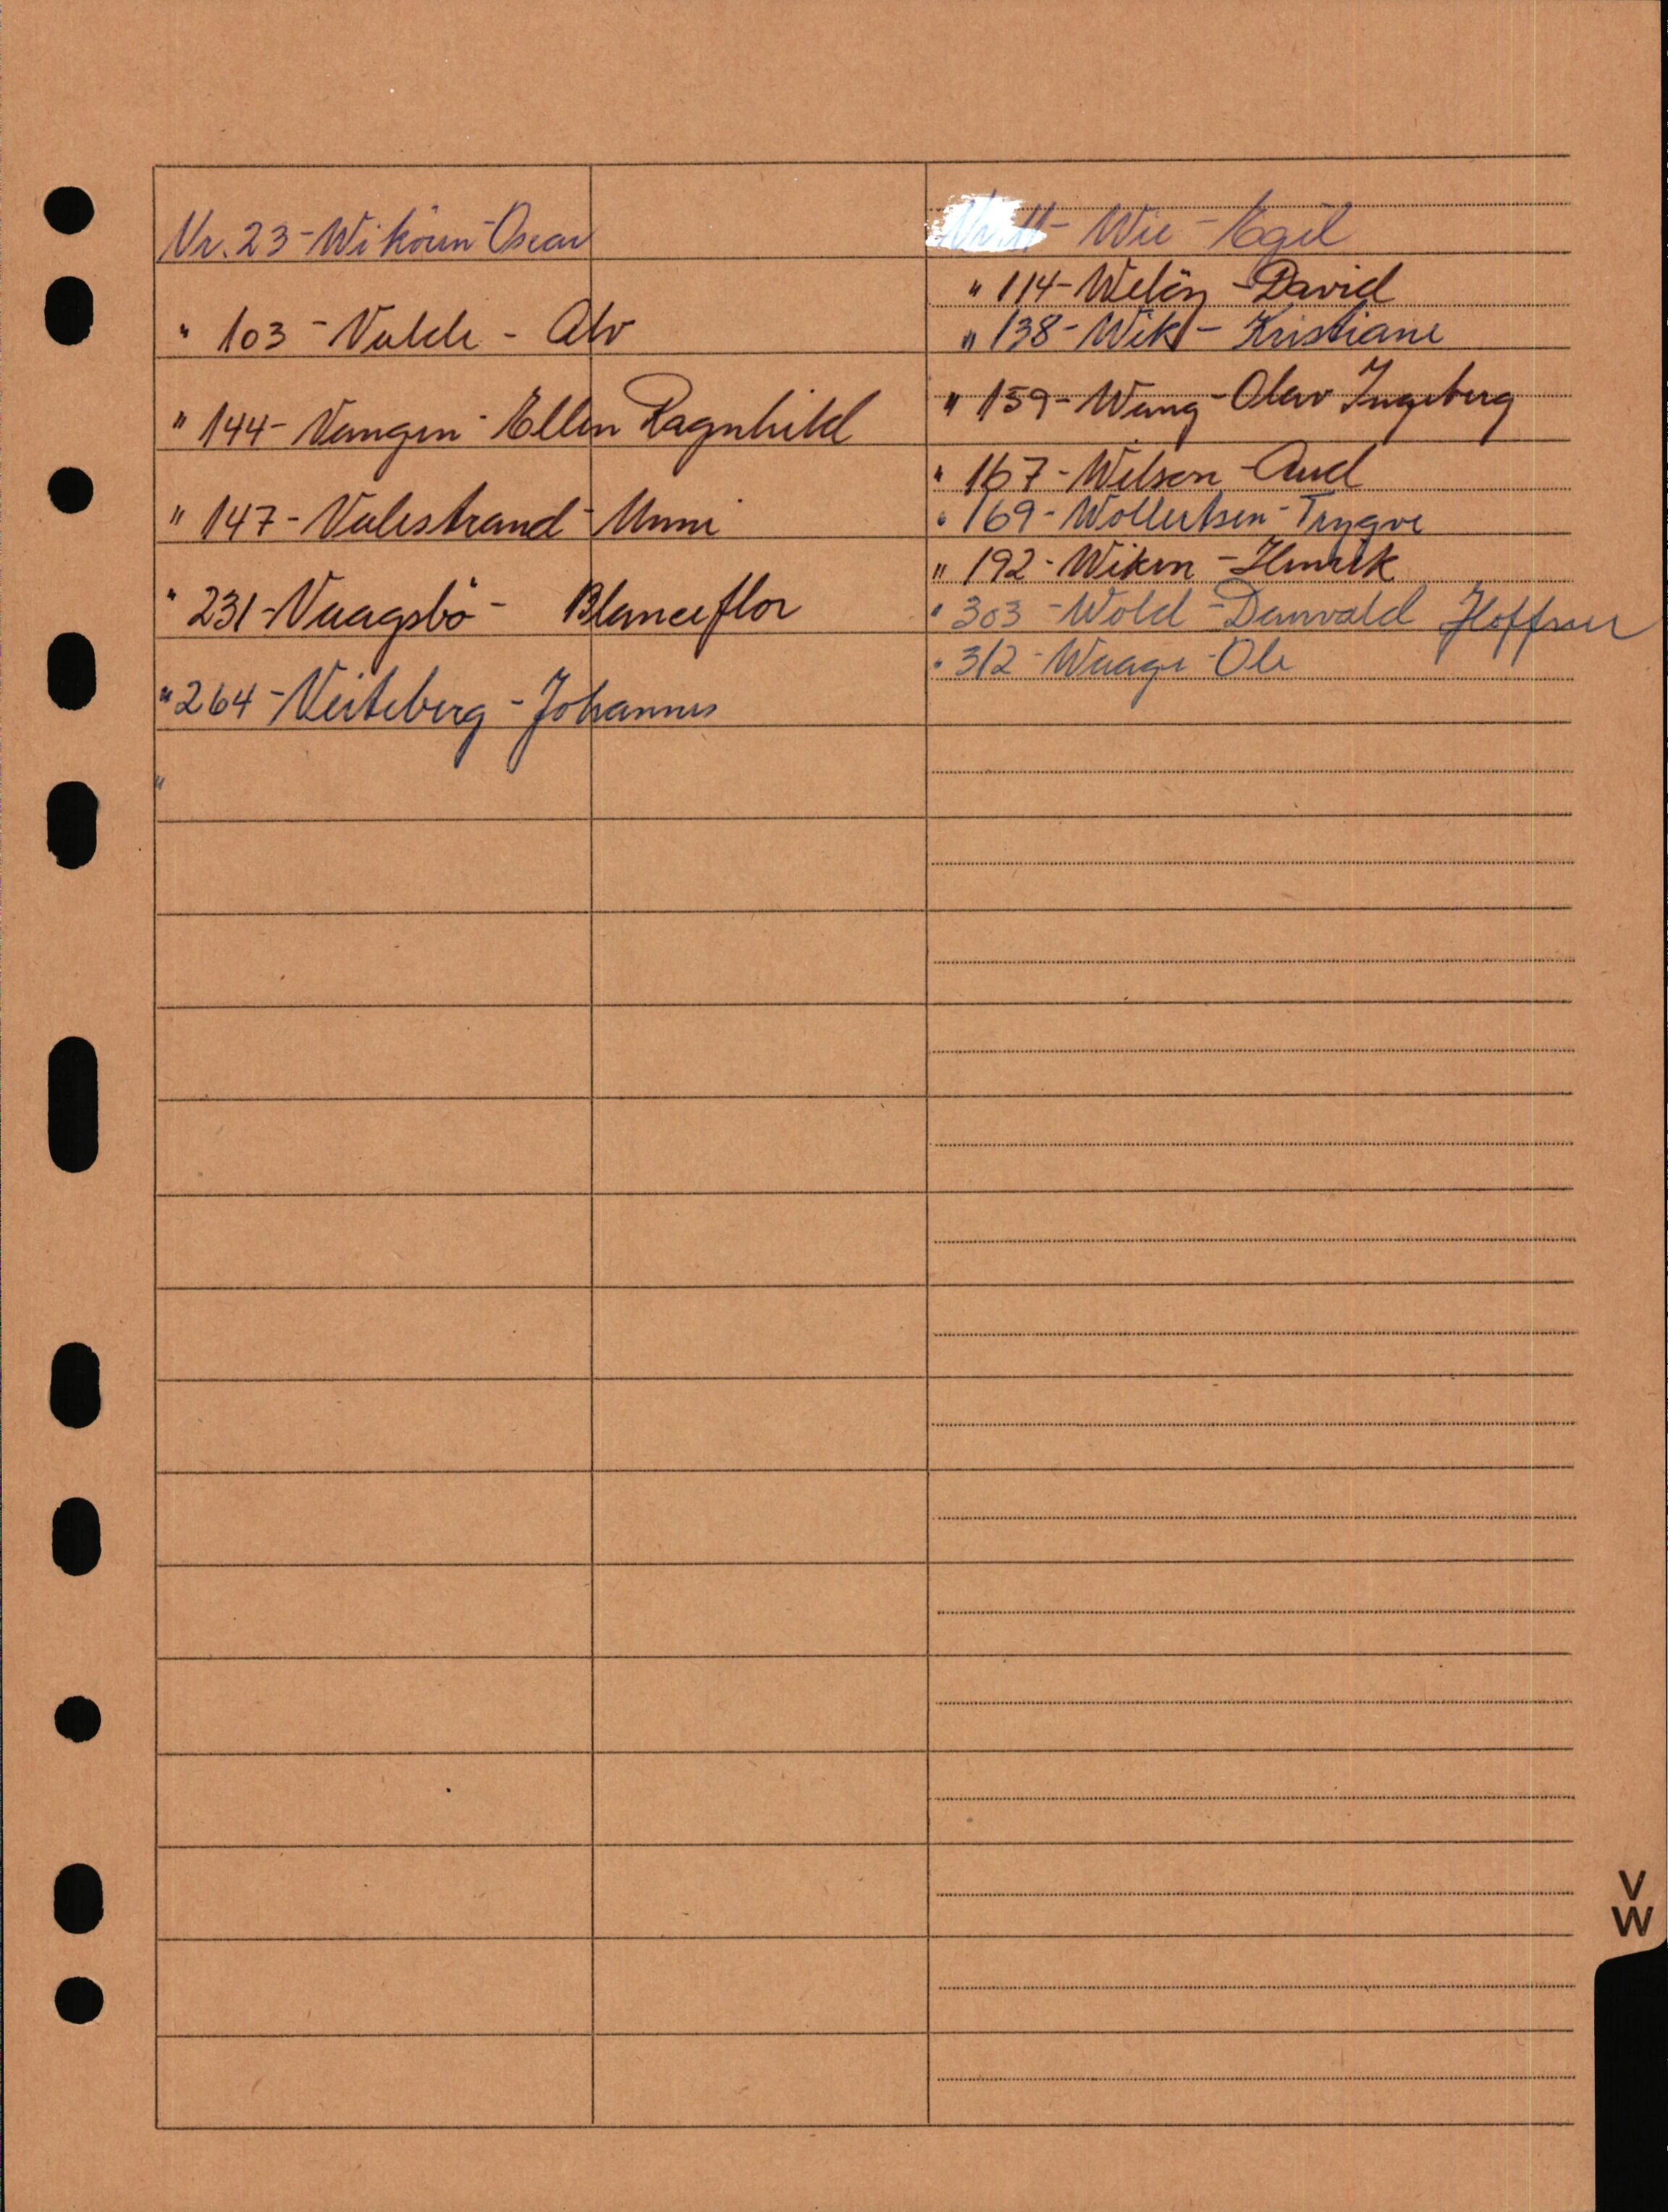 Nr. 23 - Wikören - Oscar
" 103 - Valde - Alv
" 144 - Vangen - Ellen Ragnhild
" 147 - Valestrand - Unni
" 231 - Vaagsbö - Blanceflor
" 264 - Veiteberg - Johannes
"
Nr. 11 - Wie - Egil
" 114 - David
" 138 - Wik - Kristiane
" 159 - Wang - Olav Ingeberg
" 167 - Wilson - Aud
" 169 - Wollertsen - Trygve
" 192 - Wiken - Henrik
" 303 - Wold - Danvald Hoffner
" 312 - Waage - Ole
V
W